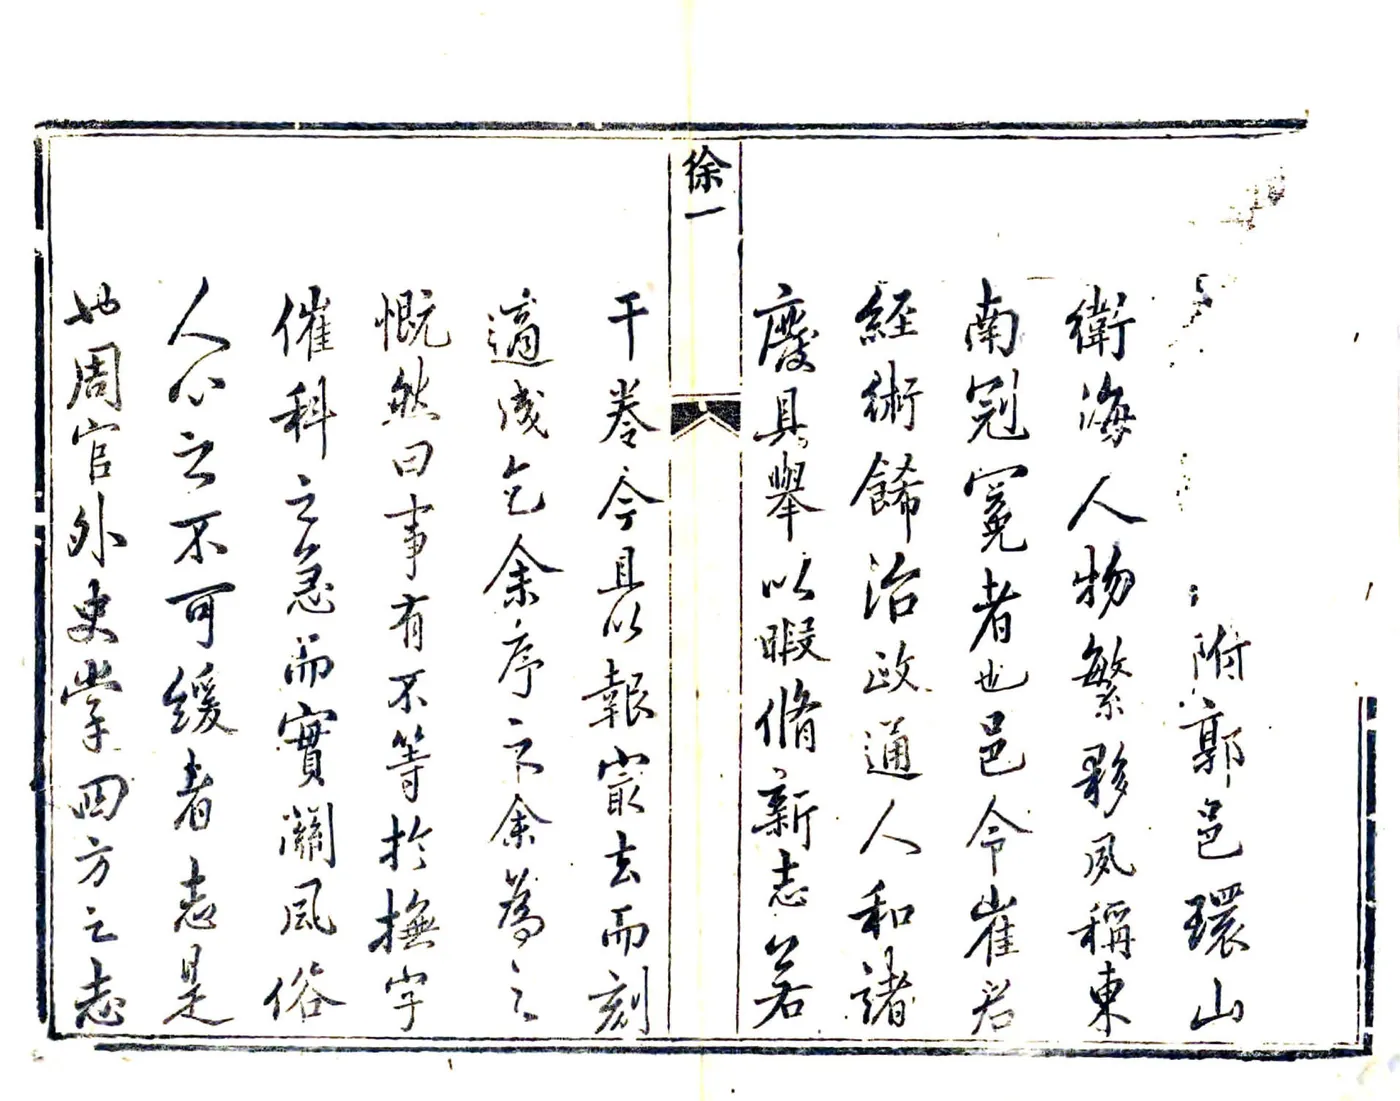 附郭邑環山
衛海人物繁夥夙稱東
南冠冕者也邑令崔君
經術餙治政通人和諸
廢具舉以暇脩新志若
徐一
干卷今且以報最去而刻
適成乞余序之余為之
慨然曰事有不等於撫字
催科之急而實關風俗
人心之不可緩者志是
也周官外史掌四方之志